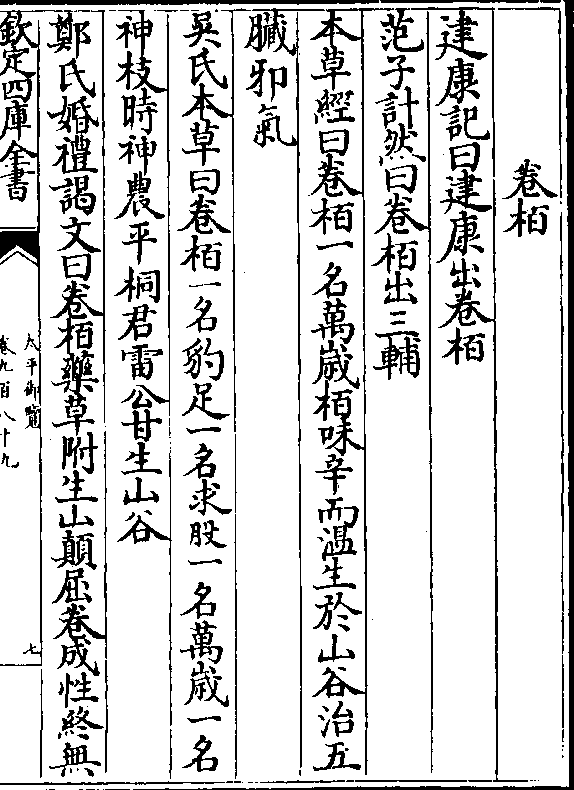 卷栢
建康記曰建康出卷栢
范子計然曰卷栢出三輔
本草經曰卷栢一名萬歲栢味辛而温生於山谷治五
臟邪氣
吳氏本草曰卷栢一名豹足一名求股一名萬歲一名
神枝時神農平桐君雷公甘生山谷
鄭氏婚禮謁文曰卷栢藥草附生山顛屈卷成性終無
欽定四庫全書
太平御覽
卷九百八十九
七